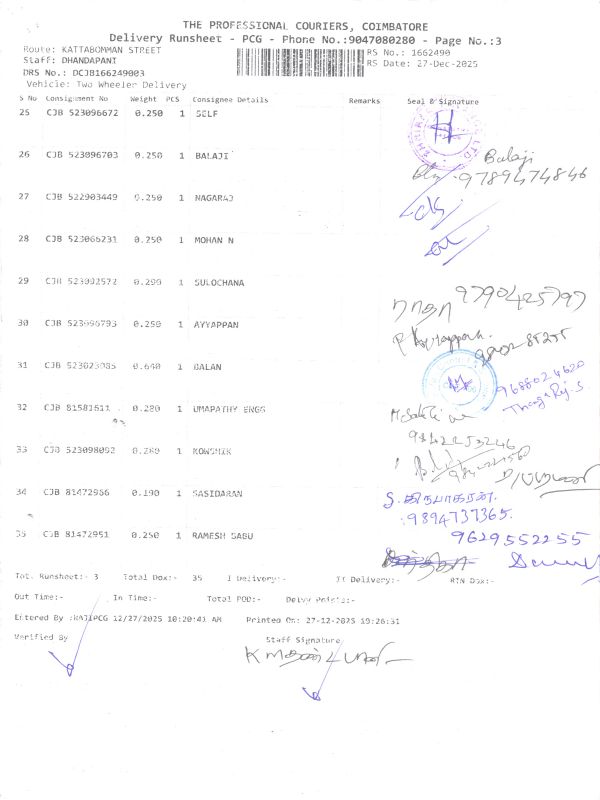 THE PROFESSIONAL COURIERS, COIMBATORE
Delivery Runsheet - PCG - Phone No.:9047080280 - Page No.:3
Route: KATTABOMMAN STREET
RS No.: 1662490
Staff: DHANDAPANI
RS Date: 27-Dec-2025
DRS No.: DCJB166249003
Vehicle: Two Wheeler Delivery
S No Consignment No Weight PCS Consignee Details Remarks Seal & Signature
25 CJB 523096672 0.250 1 SELF
26 CJB 523096703 0.250 1 BALAJI
Balaji
9789474846
27 CJB 522903449 0.250 1 NAGARAJ
28 CJB 523066231 0.250 1 MOHAN N
29 CJB 523092572 0.290 1 SULOCHANA
ராதா 9790425797
30 CJB 523096793 0.250 1 AYYAPPAN
31 CJB 523023085 0.640 1 BALAN
9688024620
32 CJB 81581611 0.280 1 UMAPATHY ENGG
9842253246
33 CJB 523098092 0.280 1 KOWSHIK
34 CJB 81472966 0.190 1 SASIDARAN
S. கிருபாகரன்.
9894737365.
35 CJB 81472951 0.250 1 RAMESH BABU
9629552255
Tot. Runsheet:- 3 Total Dox:- 35 I Delivery:- II Delivery:- RTN Dox:-
Out Time:- In Time:- Total POD:- Delvy Points:-
Entered By :RAJIPCG 12/27/2025 10:20:41 AM Printed On: 27-12-2025 10:26:31
Verified By
Staff Signature